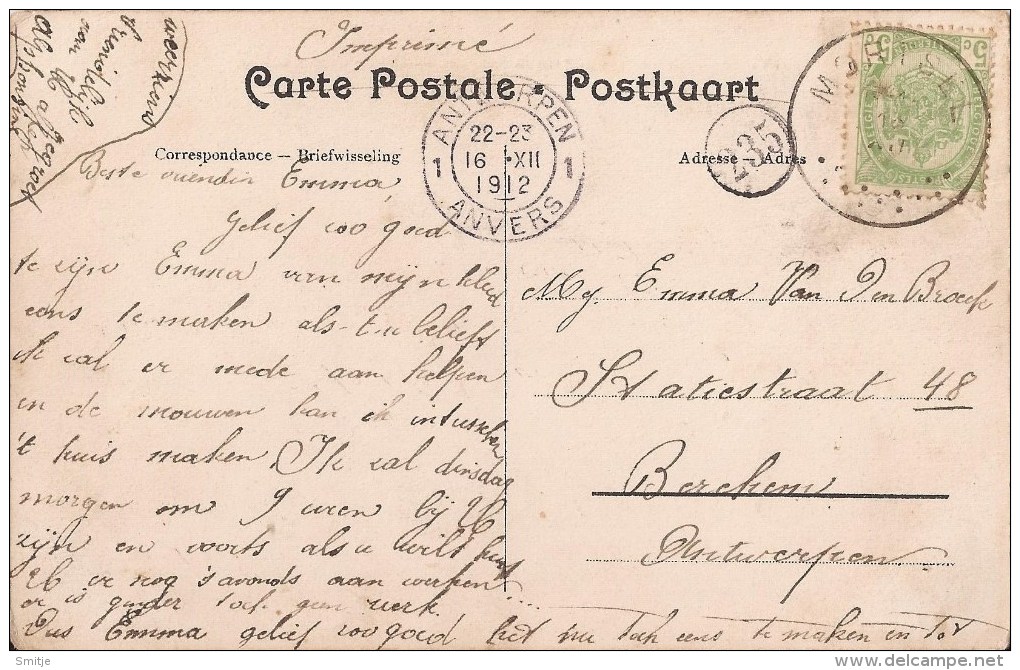 Imprimé
Carte Postale • Postkaart
ANTWERPEN
22-23
1 16 XII 1
1912
ANVERS
235
MORTSEL
Correspondance — Briefwisseling
Adresse — Adres
Beste vriendin Emma
Gelief zoo goed
te zijn Emma van mijn kleed
eens te maken als-t-u belieft
ik zal er mede aan helpen
en de mouwen kan ik intusschen
't huis maken. Ik zal dinsdag
morgen om 9 uren bij U
zijn en voorts als u wilt kunt
U er nog 's avonds aan werken
er is ginder toch geen werk
Dus Emma gelief zoo goed het nu toch eens te maken en tot
weerziens
Vriendelijk
van U
Alphonsine
Mej. Emma Van Den Broeck
Statiestraat 48
Berchem
Antwerpen
Smitje
delcampe.net